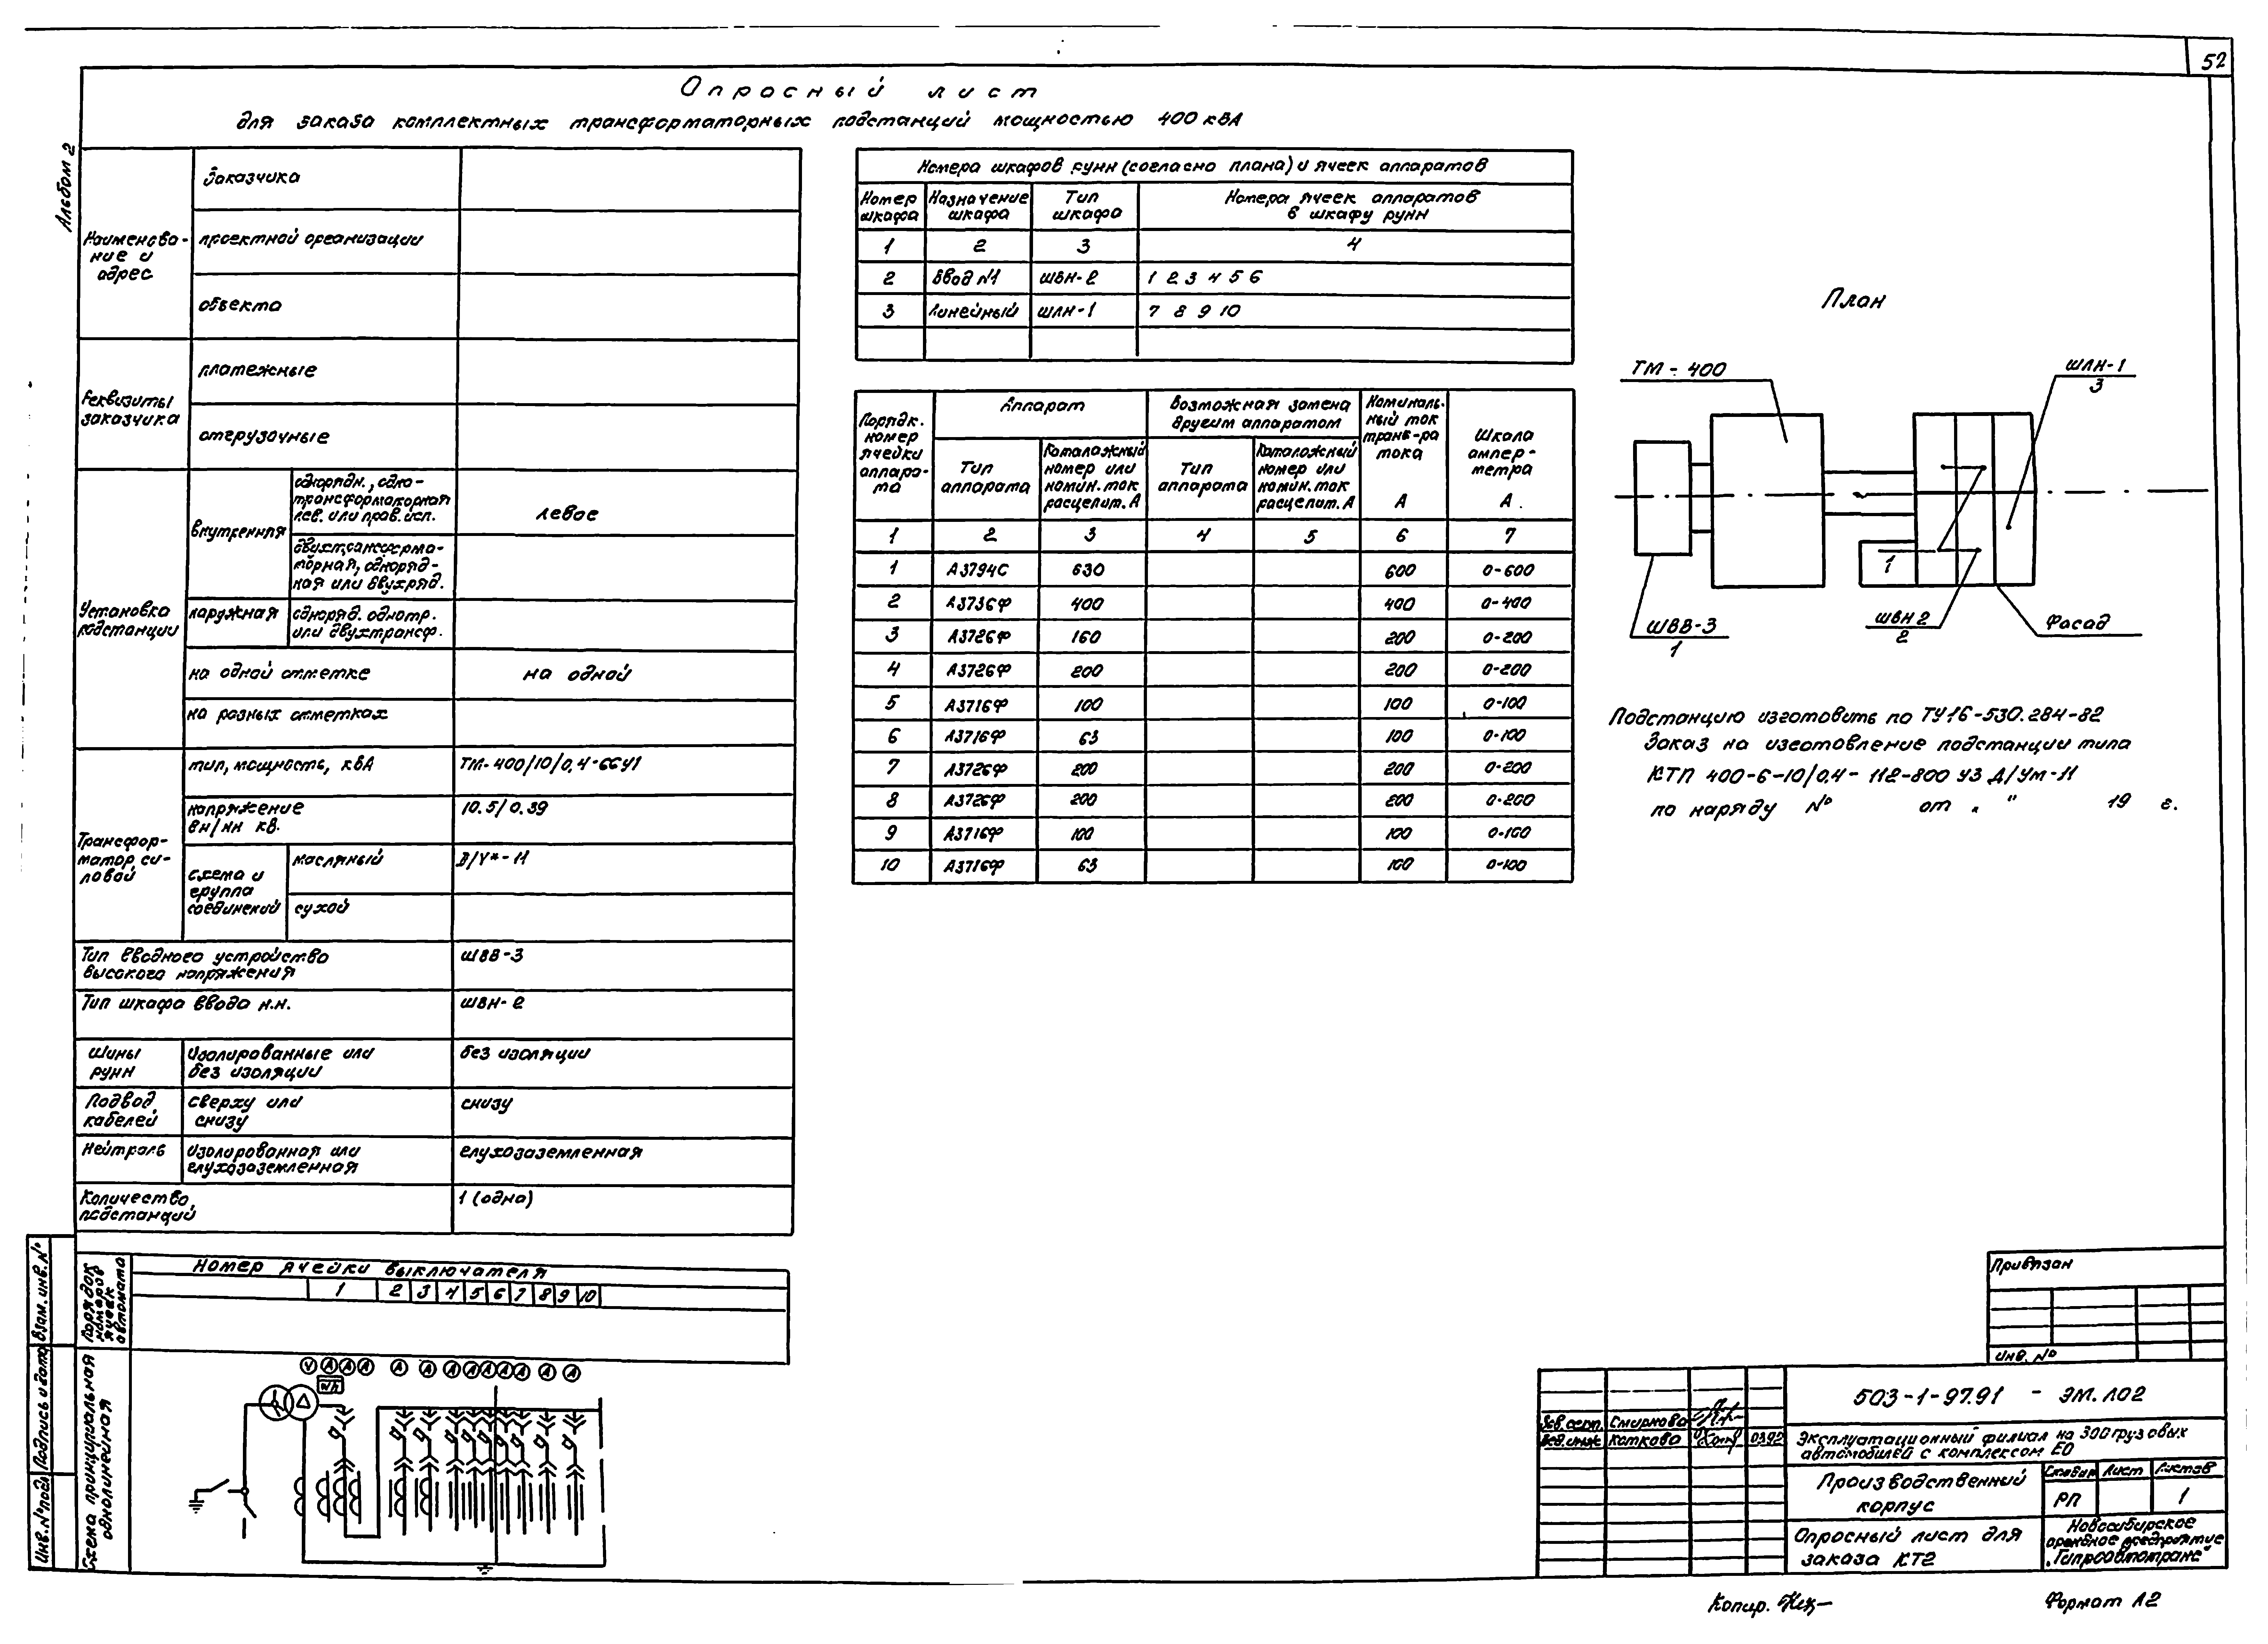 52
Альбом 2
Опросный лист
для заказа комплектных трансформаторных подстанций мощностью 400 кВА
Наименова-
ние и
адрес
Заказчика
проектной организации
объекта
Реквизиты
заказчика
платежные
отгрузочные
Установка
подстанции
внутренняя
однорядн., одно-
трансформаторная
лев. или прав. исп.
левое
двухтрансформа-
торная, одноряд-
ная или двухряд.
наружная
одноряд. однотр.
или двухтрансф.
на одной отметке
на одной
на разных отметках
Трансфор-
матор си-
ловой
тип, мощность, кВА
ТМ-400/10/0,4-66У1
напряжение
вн/нн кв.
10.5/0.39
схема и
группа
соединений
масляный
Д/Ун-11
сухой
Тип вводного устройства
высокого напряжения
ШВВ-3
Тип шкафа ввода н.н.
ШВН-2
Шины
рунн
изолированные или
без изоляции
без изоляции
Подвод
кабелей
сверху или
снизу
снизу
Нейтраль
изолированная или
глухозаземленная
глухозаземленная
Количество
подстанций
1 (одна)
Порядок
номеров
ячеек
автомата
Номер ячейки выключателя
1 2 3 4 5 6 7 8 9 10
Схема принципиальная
однолинейная
V A A A A A A A A A A A A
Wh
Номера шкафов рунн (согласно плана) и ячеек аппаратов
Номер
шкафа
Назначение
шкафа
Тип
шкафа
Номера ячеек аппаратов
в шкафу рунн
1 2 3 4
2 Ввод №1 ШВН-2 1 2 3 4 5 6
3 Линейный ШЛН-1 7 8 9 10
Порядк.
номер
ячейки
аппара-
та
Аппарат
Тип
аппарата
Каталожный
номер или
номин. ток
расцепит. А
Возможная замена
другим аппаратом
Тип
аппарата
Каталожный
номер или
номин. ток
расцепит. А
Номиналь-
ный ток
транс-ра
тока
А
Шкала
ампер-
метра
А.
1 2 3 4 5 6 7
1 А3794С 630 600 0-600
2 А3736Ф 400 400 0-400
3 А3726Ф 160 200 0-200
4 А3726Ф 200 200 0-200
5 А3716Ф 100 100 0-100
6 А3716Ф 63 100 0-100
7 А3726Ф 200 200 0-200
8 А3726Ф 200 200 0-200
9 А3716Ф 100 100 0-100
10 А3716Ф 63 100 0-100
План
ТМ-400
ШЛН-1
3
1
ШВВ-3
1
ШВН 2
2
Фасад
Подстанцию изготовить по ТУ16-530.284-82
Заказ на изготовление подстанции типа
КТП 400-6-10/0,4-112-800 У3 Д/Ун-11
по наряду № от „ " 19 г.
Привязан
Инв. №
503-1-97.91 - ЭМ.Л02
Зав. сект. Смирнова
Вед. инж Каткова 03.92
Эксплуатационный филиал на 300 грузовых
автомобилей с комплексом ЕО
Производственный
корпус
Стадия Лист Листов
РП 1
Опросный лист для
заказа КТ2
Новосибирское
"Гипроавтотранс"
Инв.№подл Подпись и дата Взам. инв. №
Копир.
Формат А2